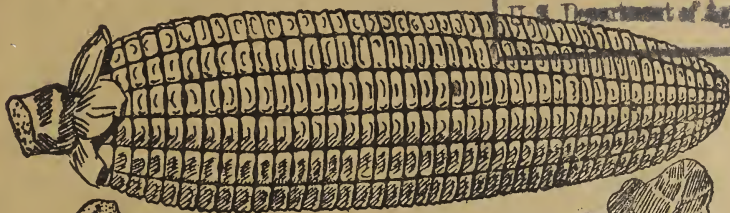 U. S. Department of Ag